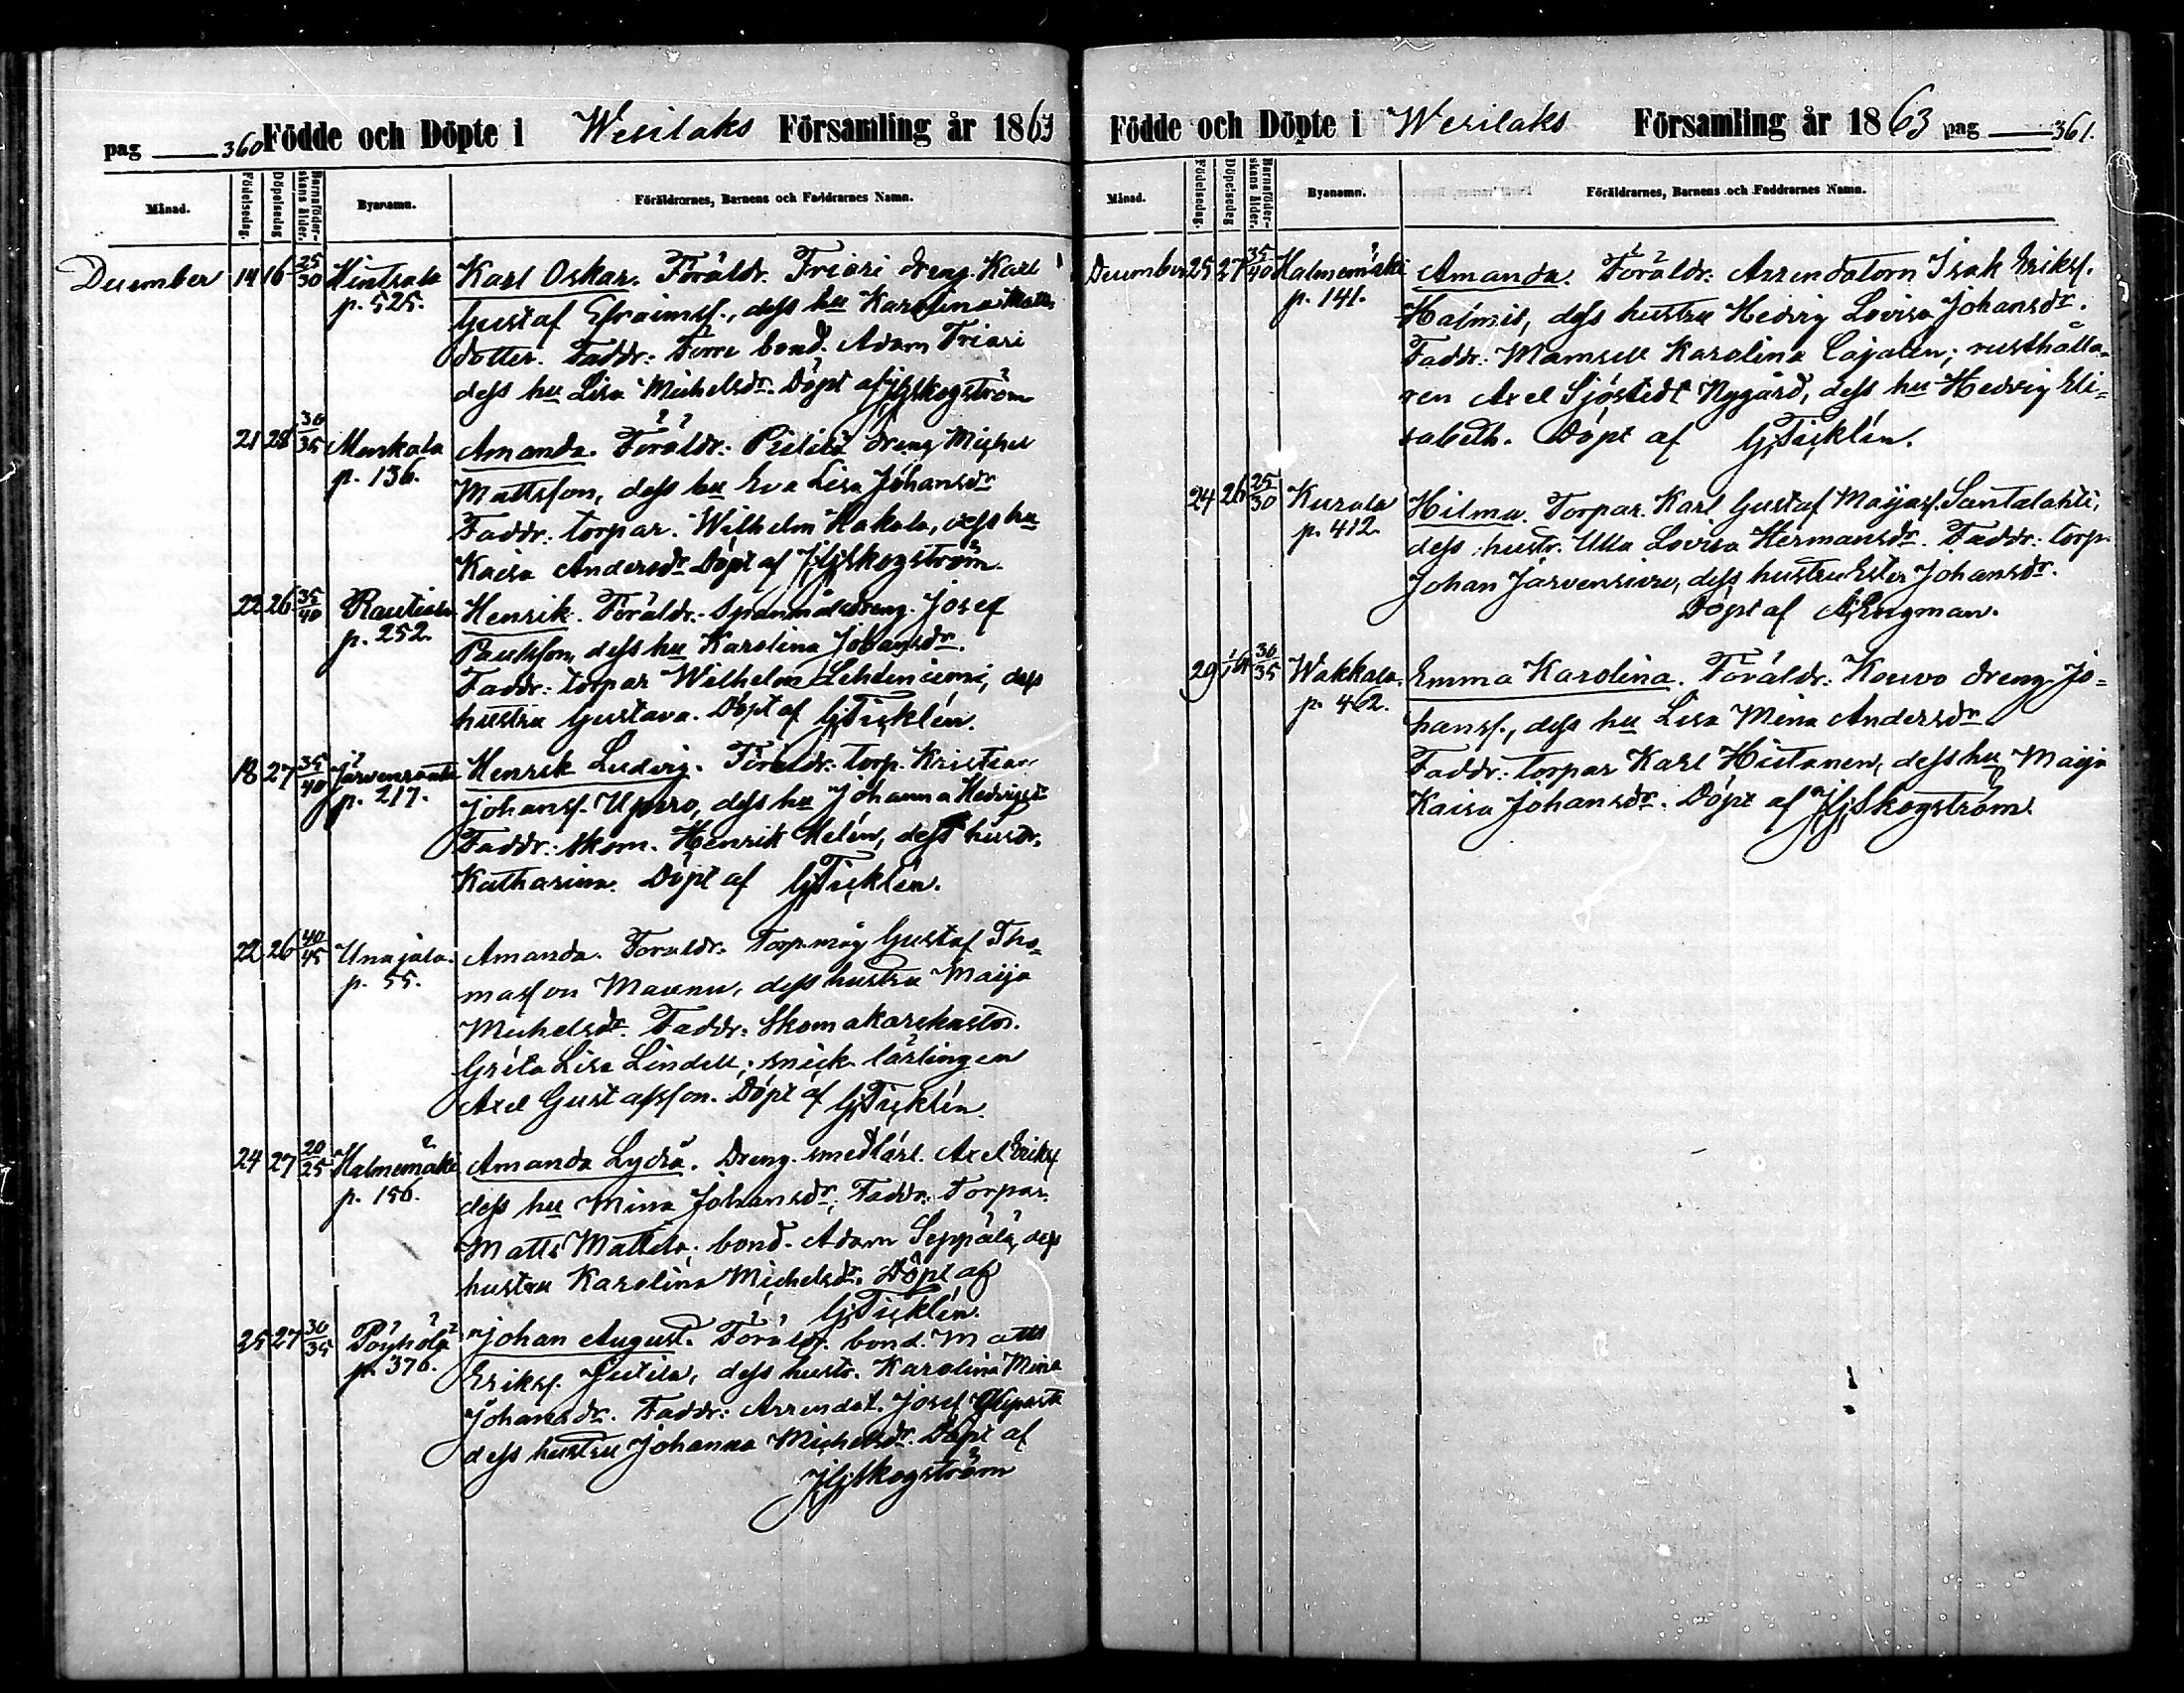 pag 360 Födde och Döpte i Wesilaks Församling år 1863
Månad. Födelsedag. Döpelsedag Barnaföderskans ålder. Byanamn. Föräldrarnes, Barnens och Faddrarnes Namn.
December 14 16 25/30 Hintsala Karl Oskar. Föräldr. Friari dreng. Karl
p. 525. Gustaf Efraimss., dess hu Karolina Matts
dotter. Faddr: bond. Adam Friari
dess hu Lisa Michelsdr. Döpt af JGSkogström
21 28 30/35 Menkala Amanda. Föräldr: dreng Michel
p. 136. Mattsson, dess hu Eva Lisa Johansdr
Faddr: torpar. Wilhelm Hakala, dess hu
Kaisa Andersdr Döpt af JGSkogström.
22 26 35/40 Rautiala Henrik. Föräldr. Spånmålsdreng. Josef
p. 252. Paulsson, dess hu Karolina Johansdr.
Faddr: torpar Wilhelm Lehdenniemi, dess
hustru Gustava. Döpt af GTicklén.
18 27 35/40 Järvenranta Henrik Ludvig. Föräldr: torp. Kristian
p. 217. Johanss. Uparo, dess hu Johanna Hedvigsdr
Faddr: skom. Henrik Helén, dess hustr.
Katharina. Döpt af GTicklén.
22 26 40/45 Unajala. Amanda. Föräldr: Torp.måg Gustaf Tho=
p. 55. masson Maunu, dess hustru Maija
Michelsdr. Faddr: Skomakarehustr.
Greta Lisa Lindell; snick. lärlingen
Axel Gustafsson. Döpt af GTicklén.
24 27 20/25 Halmemäki Amanda Lydia. Dreng. smedlärl. Axel Erikss
p. 156. dess hu Mina Johansdr; Faddr: Torpar.
Matts Mattila; bond. Adam Seppälä, dess
hustru Karolina Michelsdr. Döpt af
GTicklén.
25 27 30/35 Pöyhölä Johan August. Föräldr. bond. Matts
p. 376. Erikss. Jutila, dess hustr. Karolina Mina
Johansdr. Faddr: Arrendat. Josef
dess hustru Johanna Michelsdr. Döpt af
JGSkogström
Födde och Döpte i Wesilaks Församling år 1863 pag 361.
Månad. Födelsedag. Döpelsedag Barnaföderskans ålder. Byanamn. Föräldrarnes, Barnens och Faddrarnes Namn.
December 25 27 35/40 Halmemäki Amanda. Föräldr: Arrendatorn Isak Erikss.
p. 141. Halmis, dess hustru Hedvig Lovisa Johansdr.
Faddr: Mamsell Karolina Cajalen; rusthålla=
ren Axel Sjöstedt Nygård, dess hu Hedvig Eli=
sabeth. Döpt af GTicklén.
24 26 25/30 Kurala Hilma. Torpar. Karl Gustaf Maijass. Santalahti,
p. 412. dess hustr. Ulla Lovisa Hermansdr. Faddr: torp.
Johan Järvensivu, dess hustru Ester Johansdr.
Döpt af AEngman.
29 1/1 64 30/35 Wakkala. Emma Karolina. Föräldr: Kouvo dreng Jo=
p. 462. hanss., dess hu Lisa Mina Andersdr
Faddr: torpar Karl Hietanen, dess hu Maija
Kaisa Johansdr. Döpt af JGSkogström.